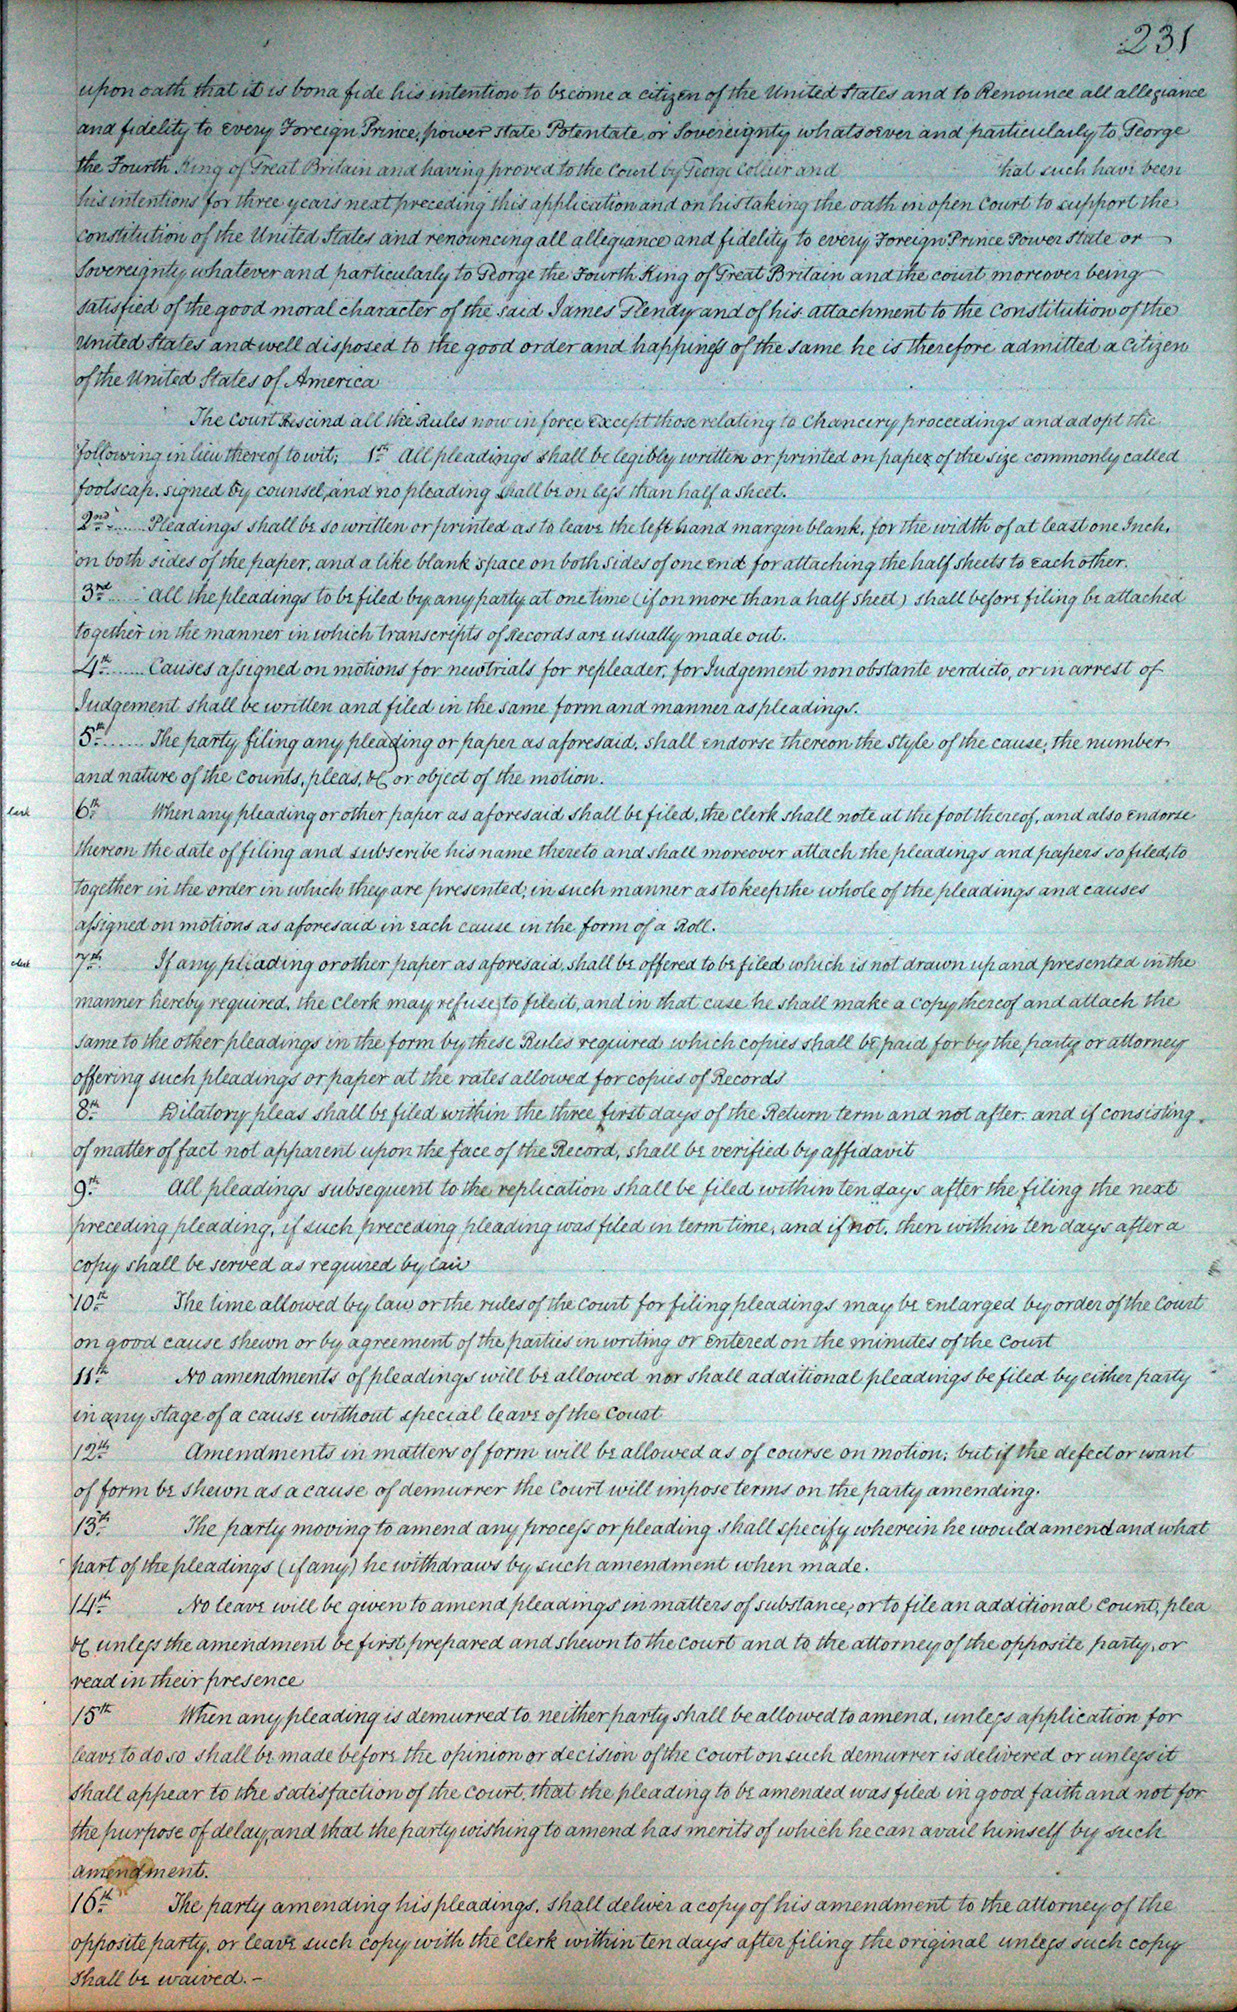 231
upon oath that it is bona fide his intention to become a citizen of the United States and to Renounce all allegiance
and fidelity to every Foreign Prince, power state Potentate or Sovereignty whatsoever and particularly to George
the Fourth King of Great Britain and having proved to the Court by George Collier and that such have been
his intentions for three years next preceding this application and on his taking the oath in open Court to support the
constitution of the United States and renouncing all allegiance and fidelity to every Foreign Prince Power State or
Sovereignty whatever and particularly to George the Fourth King of Great Britain and the court moreover being
satisfied of the good moral character of the said James Glendy and of his attachment to the Constitution of the
United States and well disposed to the good order and happiness of the same he is therefore admitted a Citizen
of the United States of America
The Court Rescind all the Rules now in force Except those relating to Chancery proceedings and adopt the
following in lieu thereof to wit; 1st All pleadings shall be legibly written or printed on paper of the size commonly called
foolscap, signed by counsel, and no pleading shall be on less than half a sheet.
2nd Pleadings shall be so written or printed as to leave the left hand margin blank, for the width of at least one Inch,
on both sides of the paper, and a like blank space on both sides of one End for attaching the half sheets to Each other.
3rd All the pleadings to be filed by any party at one time (if on more than a half sheet) shall before filing be attached
together in the manner in which transcripts of Records are usually made out.
4th Causes assigned on motions for new trials for repleader, for Judgement non obstante verdicto, or in arrest of
Judgement shall be written and filed in the same form and manner as pleadings.
5th The party filing any pleading or paper as aforesaid, shall Endorse thereon the style of the cause, the number
and nature of the counts, pleas, &c or object of the motion.
Clerk 6th When any pleading or other paper as aforesaid shall be filed, the Clerk shall note at the foot thereof, and also Endorse
thereon the date of filing and subscribe his name thereto and shall moreover attach the pleadings and papers so filed, to
together in the order in which they are presented, in such manner as to keep the whole of the pleadings and causes
assigned on motions as aforesaid in Each cause in the form of a Roll.
Clerk 7th If any pleading or other paper as aforesaid, shall be offered to be filed which is not drawn up and presented in the
manner hereby required, the Clerk may refuse to file it, and in that case he shall make a copy thereof and attach the
same to the other pleadings in the form by these Rules required which copies shall be paid for by the party or attorney
offering such pleadings or paper at the rates allowed for copies of Records
8th Dilatory pleas shall be filed within the three first days of the Return term and not after. and if consisting
of matter of fact not apparent upon the face of the Record, shall be verified by affidavit
9th All pleadings subsequent to the replication shall be filed within ten days after the filing the next
preceding pleading, if such preceding pleading was filed in term time, and if not, then within ten days after a
copy shall be served as required by law
10th The time allowed by law or the rules of the Court for filing pleadings may be Enlarged by order of the Court
on good cause shewn or by agreement of the parties in writing or Entered on the minutes of the Court
11th No amendments of pleadings will be allowed nor shall additional pleadings be filed by either party
in any stage of a cause without special leave of the Court
12th Amendments in matters of form will be allowed as of course on motion; but if the defect or want
of form be shewn as a cause of demurrer the Court will impose terms on the party amending.
13th The party moving to amend any process or pleading shall specify wherein he would amend and what
part of the pleadings (if any) he withdraws by such amendment when made.
14th No leave will be given to amend pleadings in matters of substance, or to file an additional Count, plea
&c unless the amendment be first prepared and shewn to the court and to the attorney of the opposite party, or
read in their presence
15th When any pleading is demurred to neither party shall be allowed to amend, unless application for
leave to do so shall be made before the opinion or decision of the Court on such demurrer is delivered or unless it
shall appear to the satisfaction of the court, that the pleading to be amended was filed in good faith and not for
the purpose of delay, and that the party wishing to amend has merits of which he can avail himself by such
amendment.
16th The party amending his pleadings, shall deliver a copy of his amendment to the attorney of the
opposite party, or leave such copy with the Clerk within ten days after filing the original unless such copy
shall be waived. -